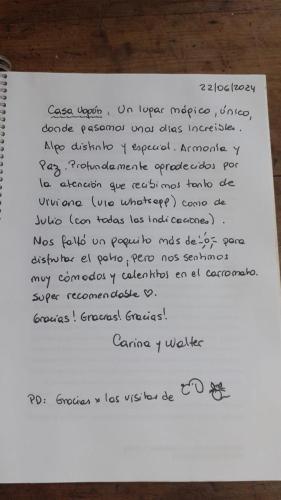 22/06/2024
Casa Vagón. Un lugar mágico, único,
donde pasamos unos días increíbles.
Algo distinto y especial. Armonía y
Paz. Profundamente agradecidos por
la atención que recibimos tanto de
Viviana (vía whatsapp) como de
Julio (con todas las indicaciones).
Nos faltó un poquito más de para
disfrutar el patio, pero nos sentimos
muy cómodos y calentitos en el carromato.
Super recomendable ♡.
Gracias! Gracias! Gracias!
Carina y Walter
PD: Gracias x las visitas de